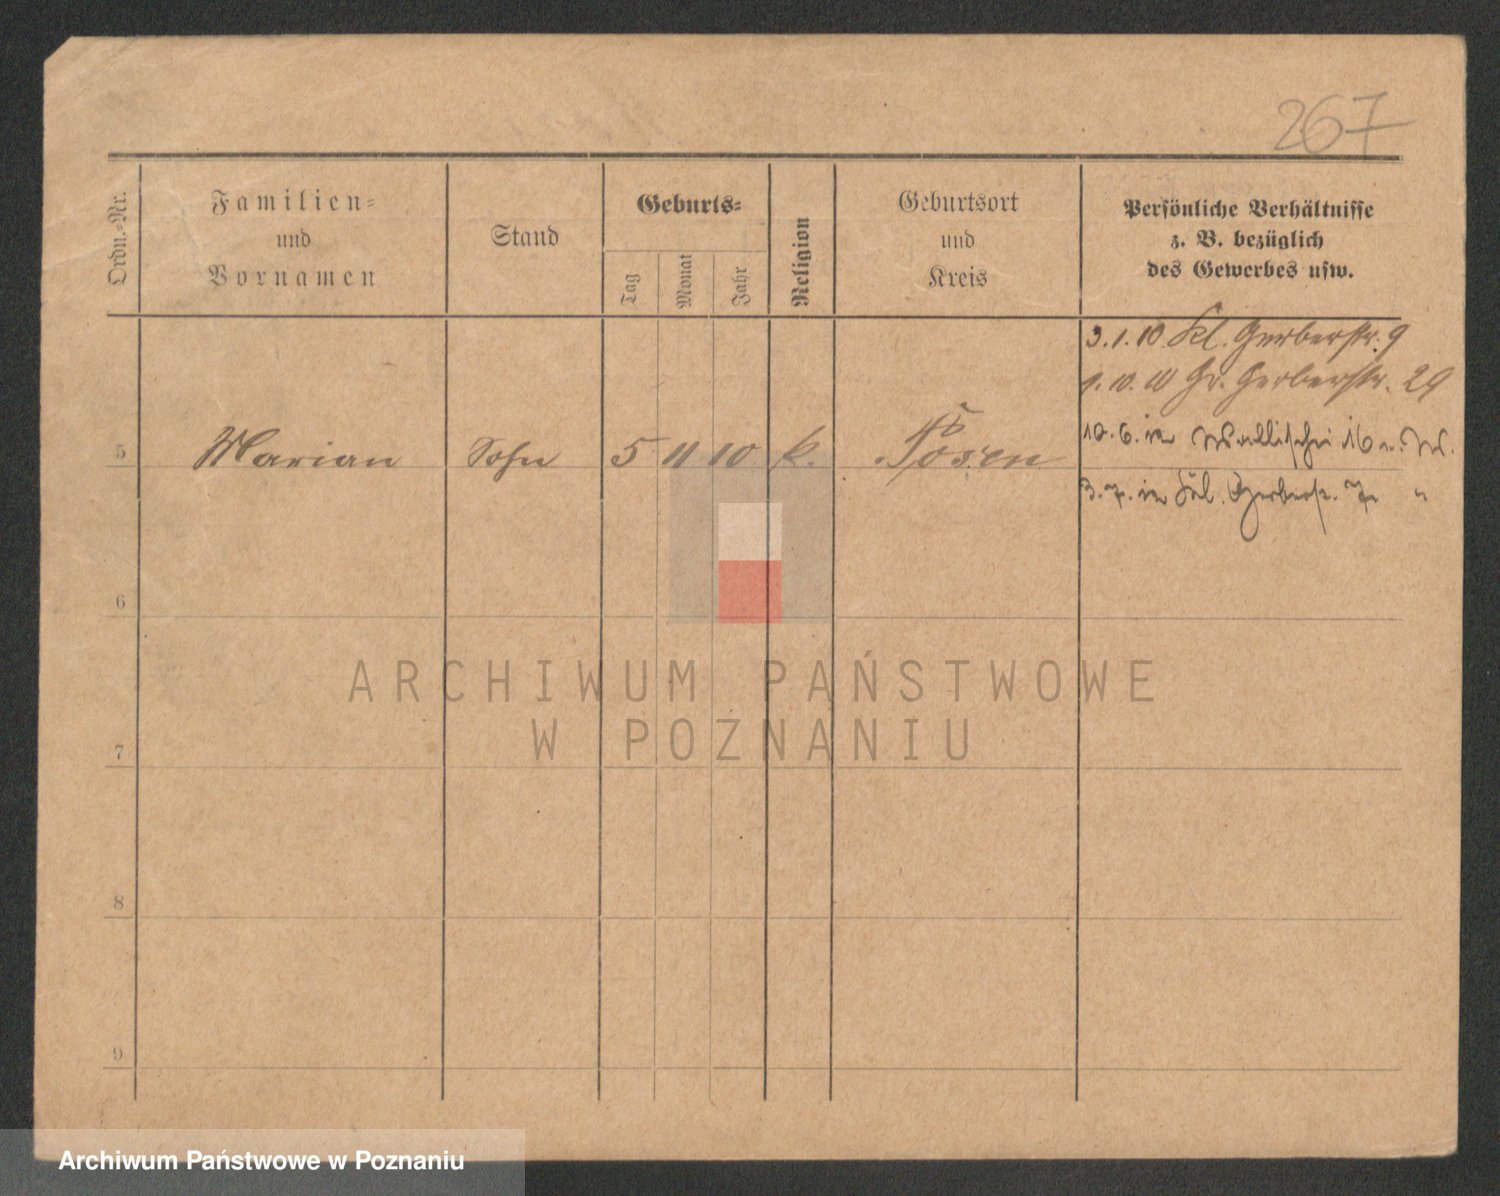 267
Ordn.-Nr.
Familien-
und
Vornamen
Stand
Geburts-
Tag
Monat
Jahr
Religion
Geburtsort
und
Kreis
Persönliche Verhältnisse
z. B. bezüglich
des Gewerbes usw.
3.1.10 Kl. Gerberstr. 9
1.10.10 Gr. Gerberstr. 29
5 Marian Sohn 5 11 10 k. Posen
10.6. Wallischei 16
3.7. Kl. Gerberstr. 7 "
6
7
8
9
ARCHIWUM PAŃSTWOWE
W POZNANIU
Archiwum Państwowe w Poznaniu